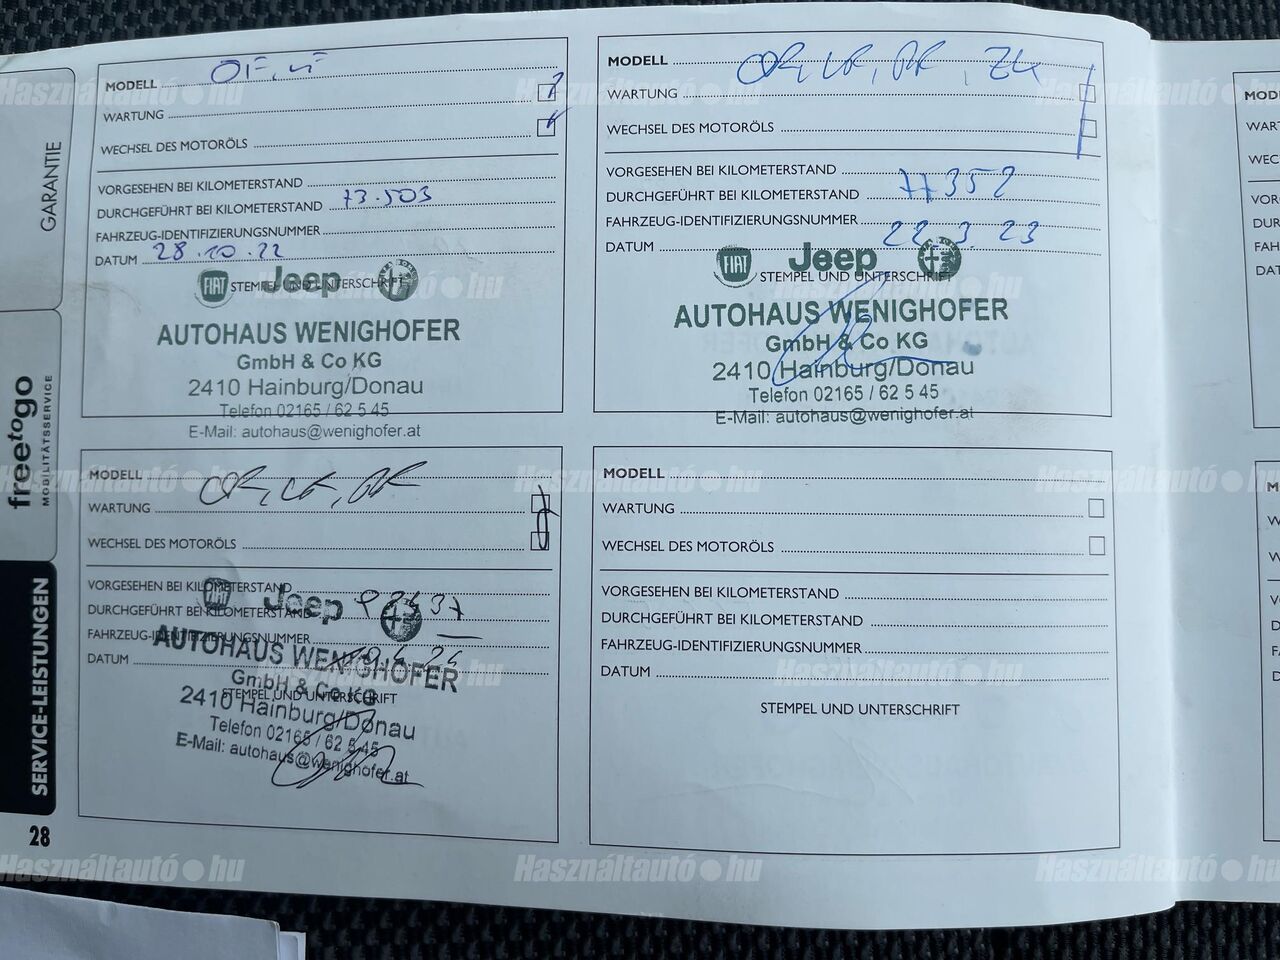 GARANTIE
freetogo
MOBILITÄTSSERVICE
SERVICE-LEISTUNGEN
28
MODELL
WARTUNG
WECHSEL DES MOTORÖLS
VORGESEHEN BEI KILOMETERSTAND
DURCHGEFÜHRT BEI KILOMETERSTAND 73.503
FAHRZEUG-IDENTIFIZIERUNGSNUMMER
DATUM 28.10.22
FIAT Jeep
STEMPEL UND UNTERSCHRIFT
AUTOHAUS WENIGHOFER
GmbH & Co KG
2410 Hainburg/Donau
Telefon 02165 / 62 5 45
E-Mail: autohaus@wenighofer.at
MODELL
WARTUNG
WECHSEL DES MOTORÖLS
VORGESEHEN BEI KILOMETERSTAND
DURCHGEFÜHRT BEI KILOMETERSTAND 77352
FAHRZEUG-IDENTIFIZIERUNGSNUMMER
DATUM 22.3.23
FIAT Jeep
STEMPEL UND UNTERSCHRIFT
AUTOHAUS WENIGHOFER
GmbH & Co KG
2410 Hainburg/Donau
Telefon 02165 / 62 5 45
E-Mail: autohaus@wenighofer.at
MODELL
WARTUNG
WECHSEL DES MOTORÖLS
VORGESEHEN BEI KILOMETERSTAND
DURCHGEFÜHRT BEI KILOMETERSTAND
FAHRZEUG-IDENTIFIZIERUNGSNUMMER
DATUM
Jeep
AUTOHAUS WENIGHOFER
GmbH & Co KG
STEMPEL UND UNTERSCHRIFT
2410 Hainburg/Donau
Telefon 02165 / 62 5 45
E-Mail: autohaus@wenighofer.at
MODELL
WARTUNG
WECHSEL DES MOTORÖLS
VORGESEHEN BEI KILOMETERSTAND
DURCHGEFÜHRT BEI KILOMETERSTAND
FAHRZEUG-IDENTIFIZIERUNGSNUMMER
DATUM
STEMPEL UND UNTERSCHRIFT
Használtautó.hu